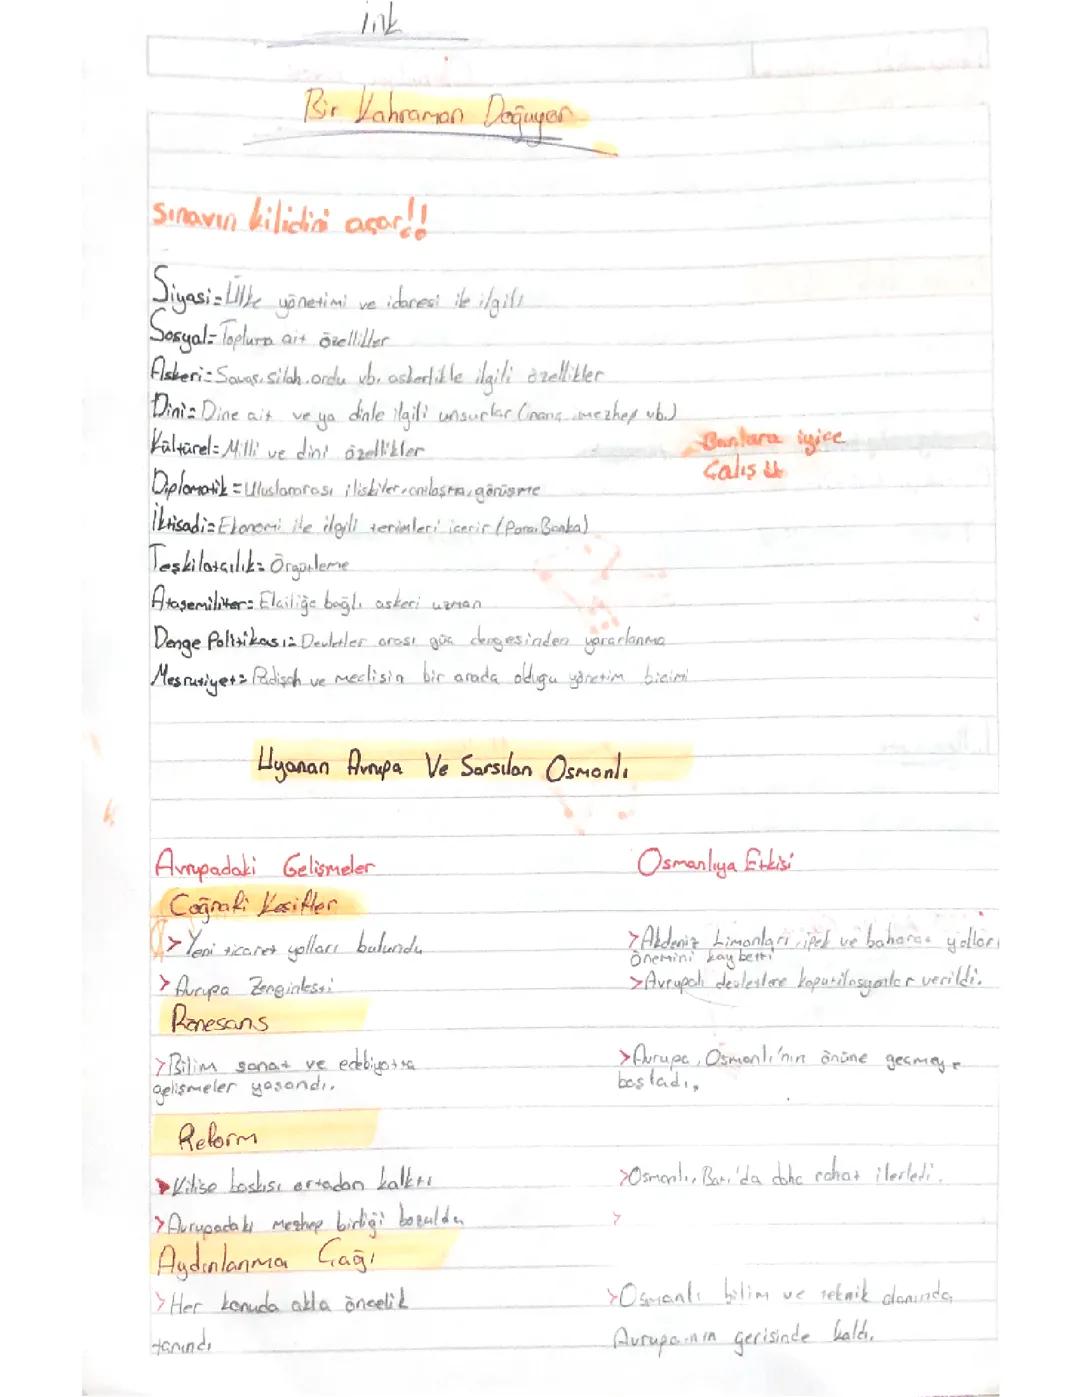 ink
Bir Kahraman Doğuyor
Sınavın kilidini açar!!
Siyasi= Ülke yönetimi ve idaresi ile ilgili
Sosyal= Topluma ait özellikler
Askeri= Savaş, silah, ordu vb. askerlikle ilgili özellikler
Dini= Dine ait ve ya dinle ilgili unsurlar (inanç, mezhep vb.)
Kültürel= Milli ve dini özellikler
Bunlara iyice
Çalış
Diplomatik= Uluslararası ilişkiler, anlaşma, görüşme
İktisadi= Ekonomi ile ilgili terimleri içerir (Para, Banka)
Teşkilatçılık= Örgütleme
Ataşemiliter= Elçiliğe bağlı askeri uzman
Denge Politikası= Devletler arası güç dengesinden yararlanma
Meşrutiyet= Padişah ve meclisin bir arada olduğu yönetim biçimi
Uyanan Avrupa Ve Sarsılan Osmanlı
Avrupadaki Gelişmeler Osmanlıya Etkisi
Coğrafi Keşifler
> Yeni ticaret yolları bulundu >Akdeniz Limanları, ipek ve baharat yolları
önemini kaybetti
> Avrupa Zenginleşti >Avrupalı devletlere kapütilasyonlar verildi.
Rönesans
>Bilim sanat ve edebiyatta >Avrupa, Osmanlı'nın önüne geçmeye
gelişmeler yaşandı. başladı.
Reform
>Kilise baskısı ortadan kalktı >Osmanlı, Batı'da daha rahat ilerledi.
>Avrupadaki mezhep birliği bozuldu >
Aydınlanma Çağı
>Her konuda akla öncelik >Osmanlı bilim ve teknik alanında,
tanındı Avrupa'nın gerisinde kaldı.